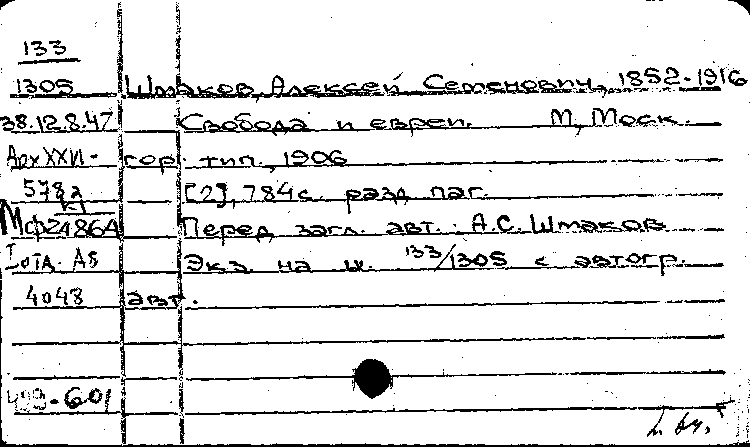 133
1305 Шмаков, Алексей Семенович, 1852-1916
38.12.8.47 Свобода и евреи. М., Моск.
Арх XXVI- гор. тип., 1906
578а [2], 784 с. разд. паг.
Мф Перед загл. авт.: А.С. Шмаков
I отд. А5 Экз. на ш. 133/1305 с автогр.
4048 авт.
-601